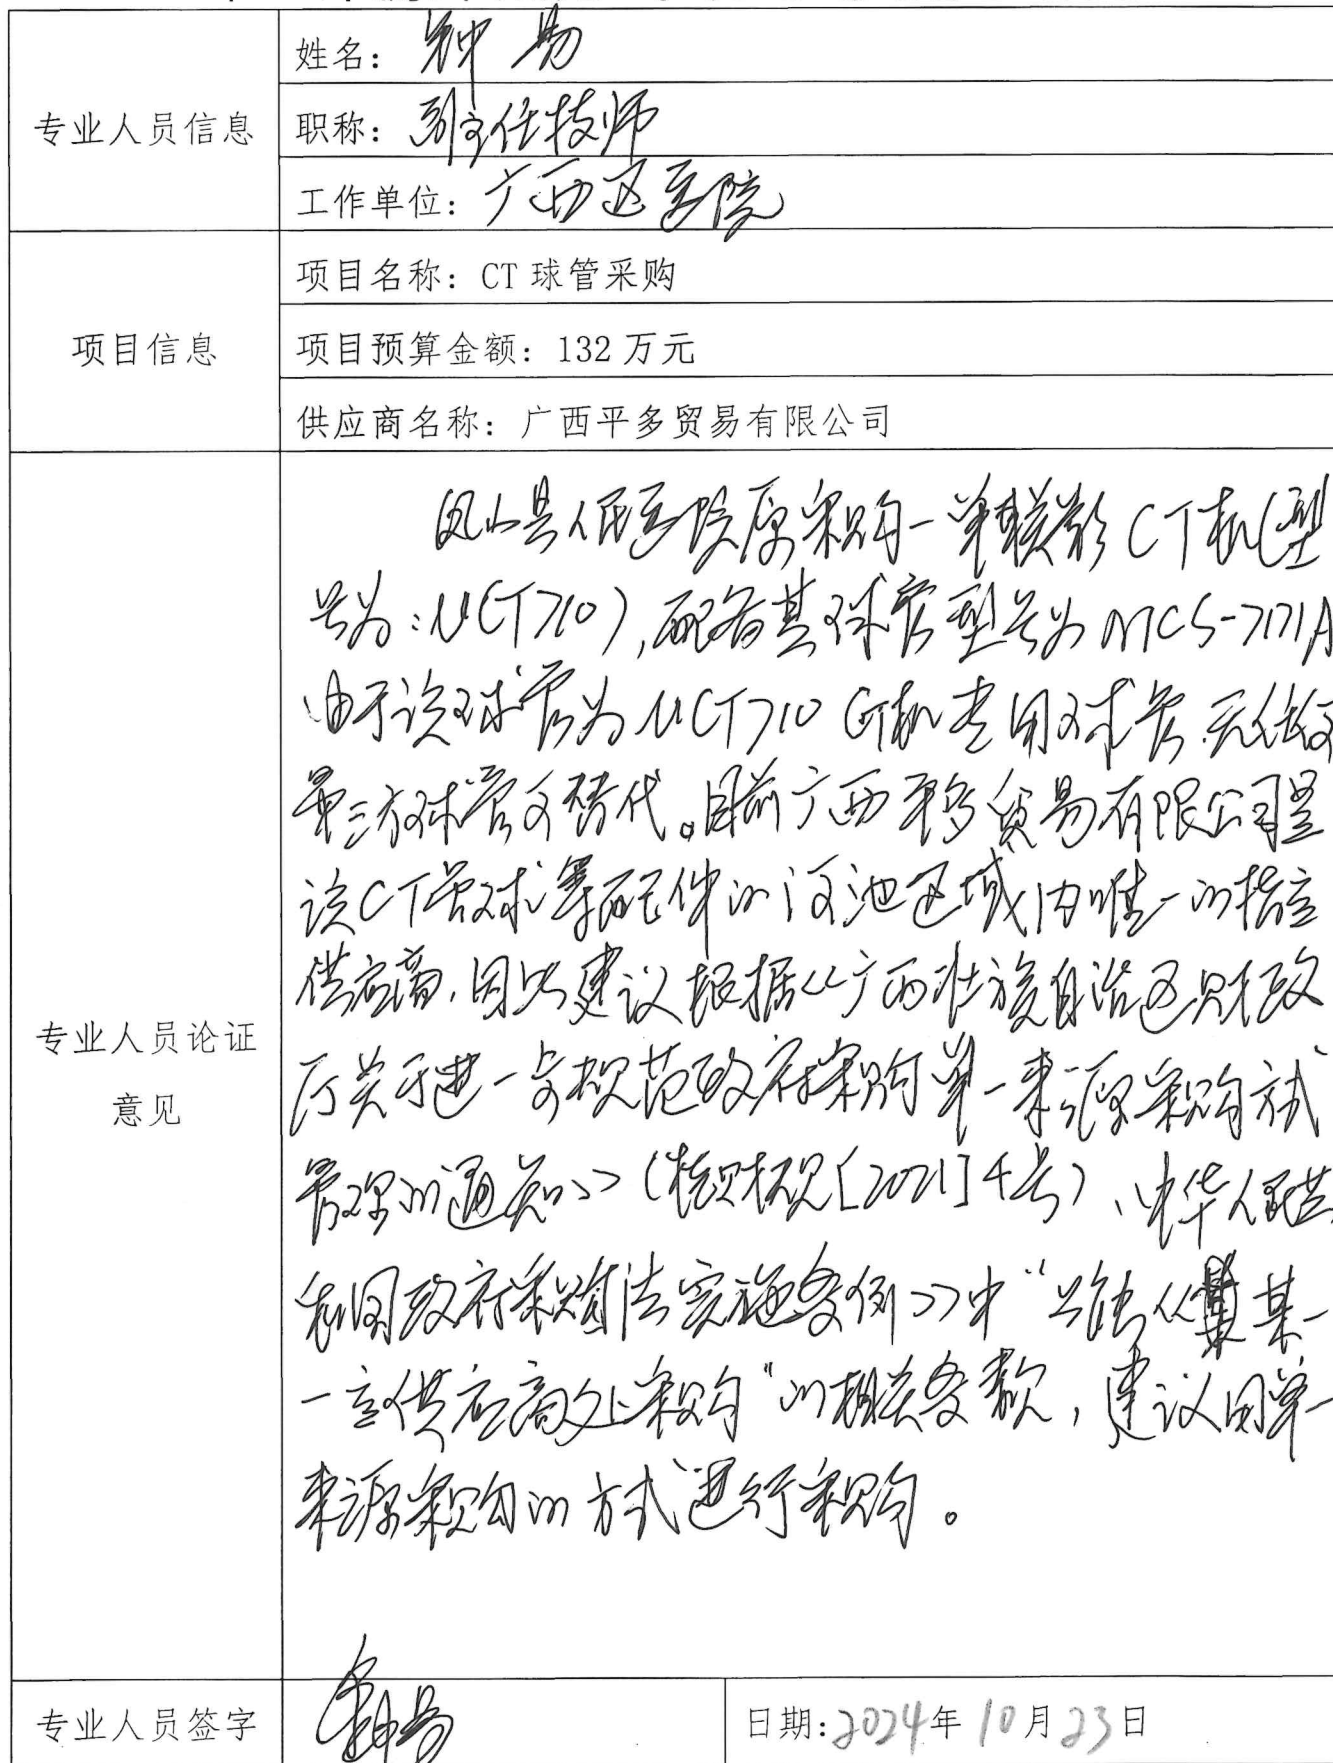 专业人员信息
姓名：钟易
职称：副主任技师
工作单位：广西区医院
项目信息
项目名称：CT 球管采购
项目预算金额：132 万元
供应商名称：广西平多贸易有限公司
专业人员论证
意见
凤山县人民医院原采购一单联影CT机（型
号为：uCT710），配备其球管型号为MCS-7171A
由于该球管为uCT710 CT机专用球管，无任何
第三方球管可替代。目前广西平多贸易有限公司是
该CT管球等配件的河池区域内唯一的指定
供应商，因此建议根据《广西壮族自治区财政
厅关于进一步规范政府采购单一来源采购方式
管理的通知》（桂财规[2021]4号）、中华人民共
和国政府采购法实施条例》中“只能从某一
一定供应商处采购”的相关条款，建议用单一
来源采购的方式进行采购。
专业人员签字
钟易
日期：2024年10月23日